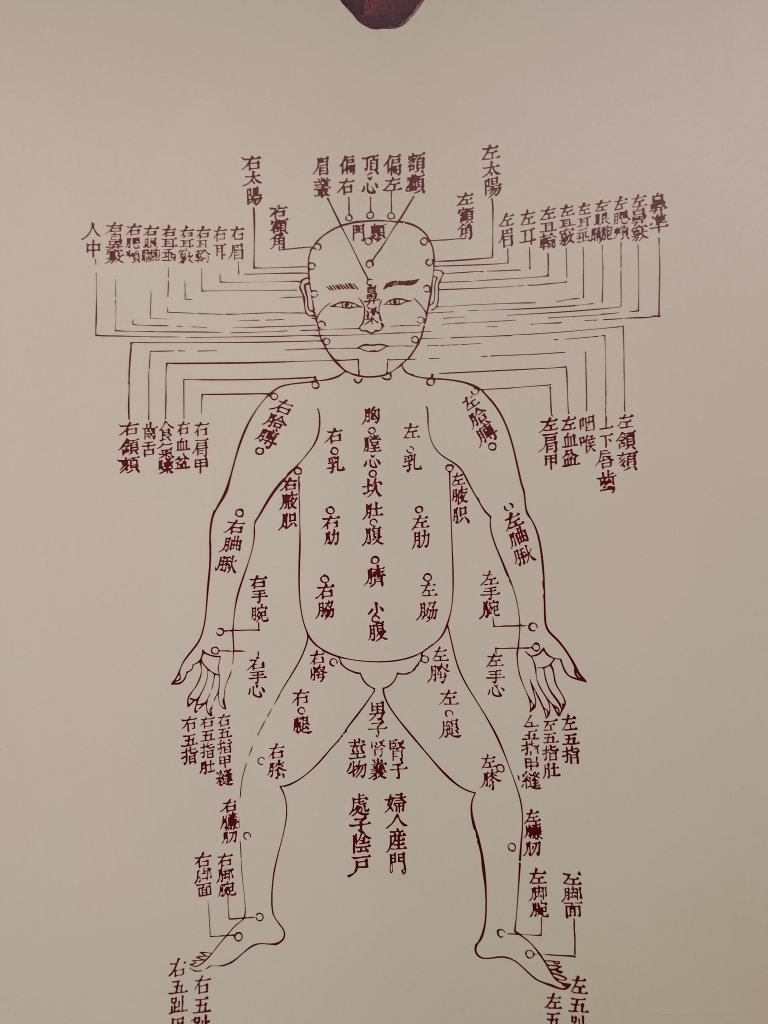 右太陽
眉叢
偏右
頂心
偏左
額顱
左太陽
右額角
顖門
左額角
人中
右鼻竅
右腮頰
右眼胞
右耳垂
右耳竅
右耳輪
右耳
右眉
左眉
左耳
左耳輪
左耳竅
左耳垂
左眼胞
左腮頰
左鼻竅
鼻準
鼻梁
右頷頦
齒舌
食氣嗓
右血盆
右肩甲
左肩甲
左血盆
咽喉
上下唇齒
左頷頦
右胳膊
左胳膊
胸膛
心坎
肚腹
臍
小腹
右乳
左乳
右腋胑
左腋胑
右肋
左肋
右脇
左脇
右䏚䐐
左䏚䐐
右手腕
左手腕
右手心
左手心
右五指
右五指肚
右五指甲縫
左五指甲縫
左五指肚
左五指
右胯
左胯
右腿
左腿
男子
莖物
腎囊
腎子
婦人産門
處子陰戶
右膝
左膝
右臁肋
左臁肋
右脚面
右脚腕
左脚腕
左脚面
右五趾
右五趾
左五
左五趾